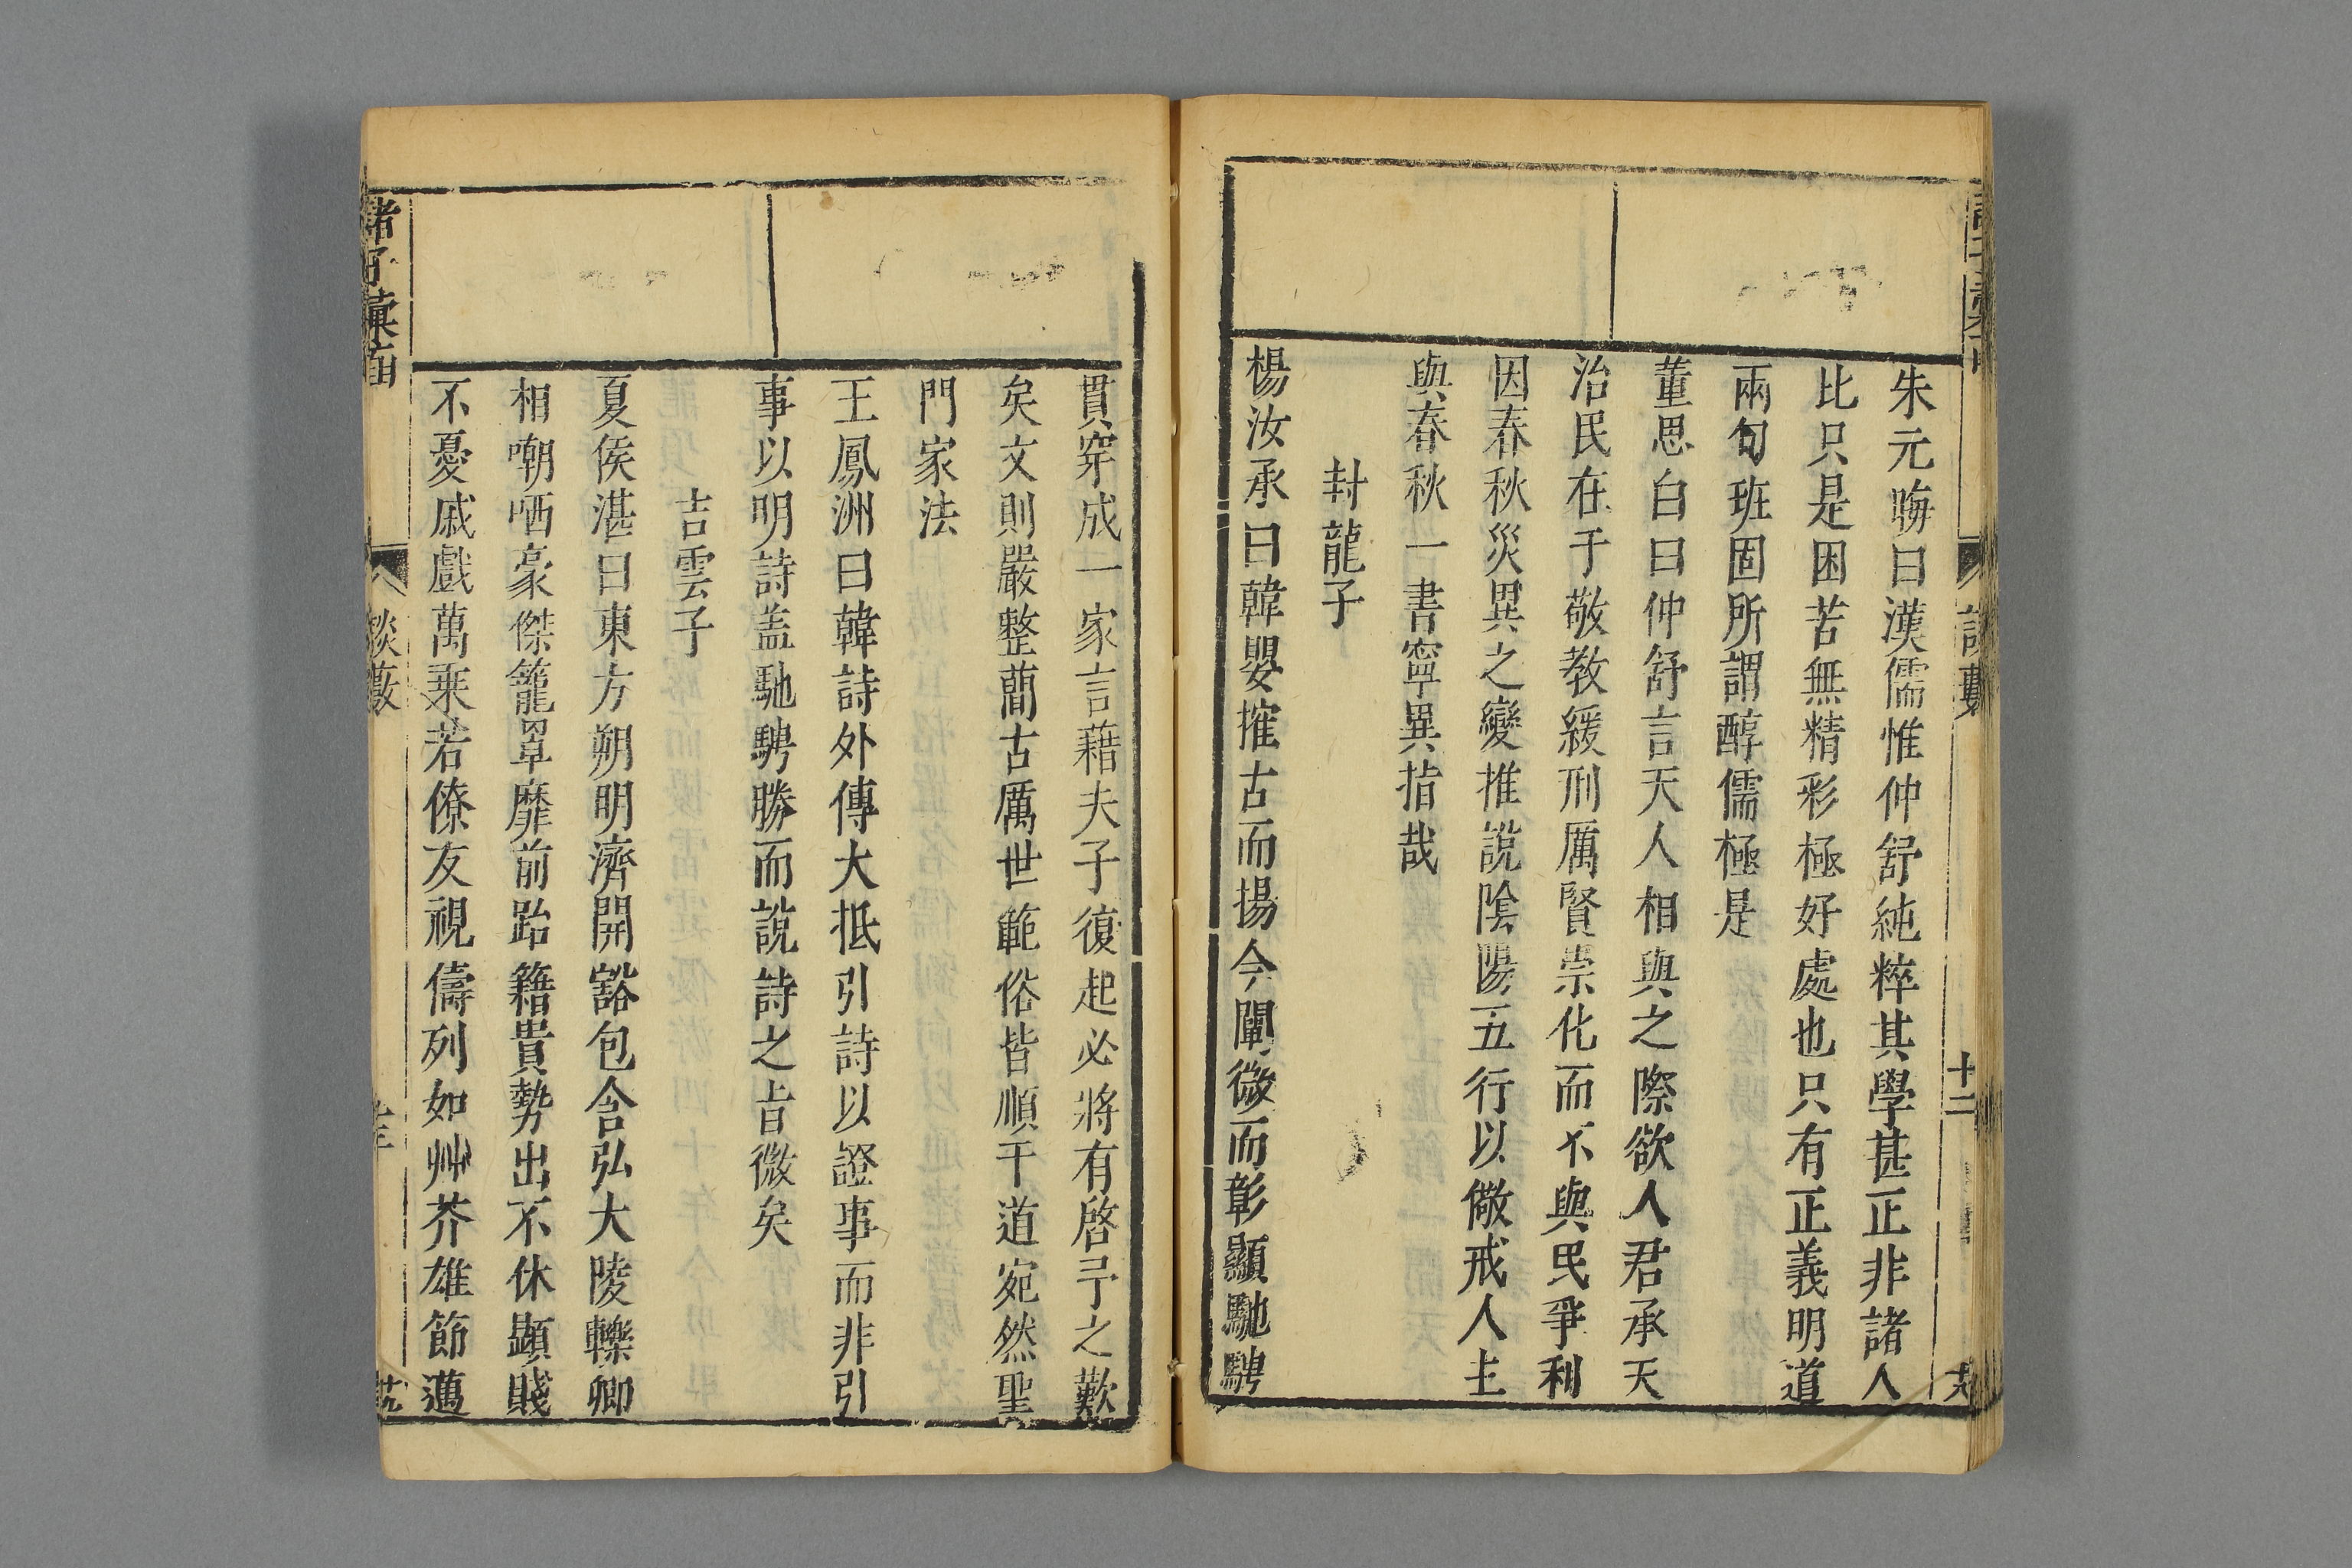 朱元晦曰漢儒惟仲舒純粹其學甚正非諸人
比只是困苦無精彩極好處也只有正義明道
兩句班固所謂醇儒極是
董思白曰仲舒言天人相與之際欲人君承天
治民在于敬教緩刑厲賢崇化而不與民爭利
因春秋災異之變推說陰陽五行以儆戒人主
與春秋一書寧異指哉
封龍子
楊汝承曰韓嬰搉古而揚今闡微而彰顯馳騁
貫穿成一家言藉夫子復起必將有啓予之歎
矣文則嚴整蕳古厲世範俗皆順干道宛然聖
門家法
王鳳洲曰韓詩外傳大抵引詩以證事而非引
事以明詩盖馳騁勝而說詩之旨微矣
吉雲子
夏侯湛曰東方朔明濟開豁包含弘大陵轢卿
相嘲哂豪傑籠罩靡前跆籍貴勢出不休顯賤
不憂戚戲萬乘若僚友視儔列如艸芥雄節邁
諸子彙函
談藪